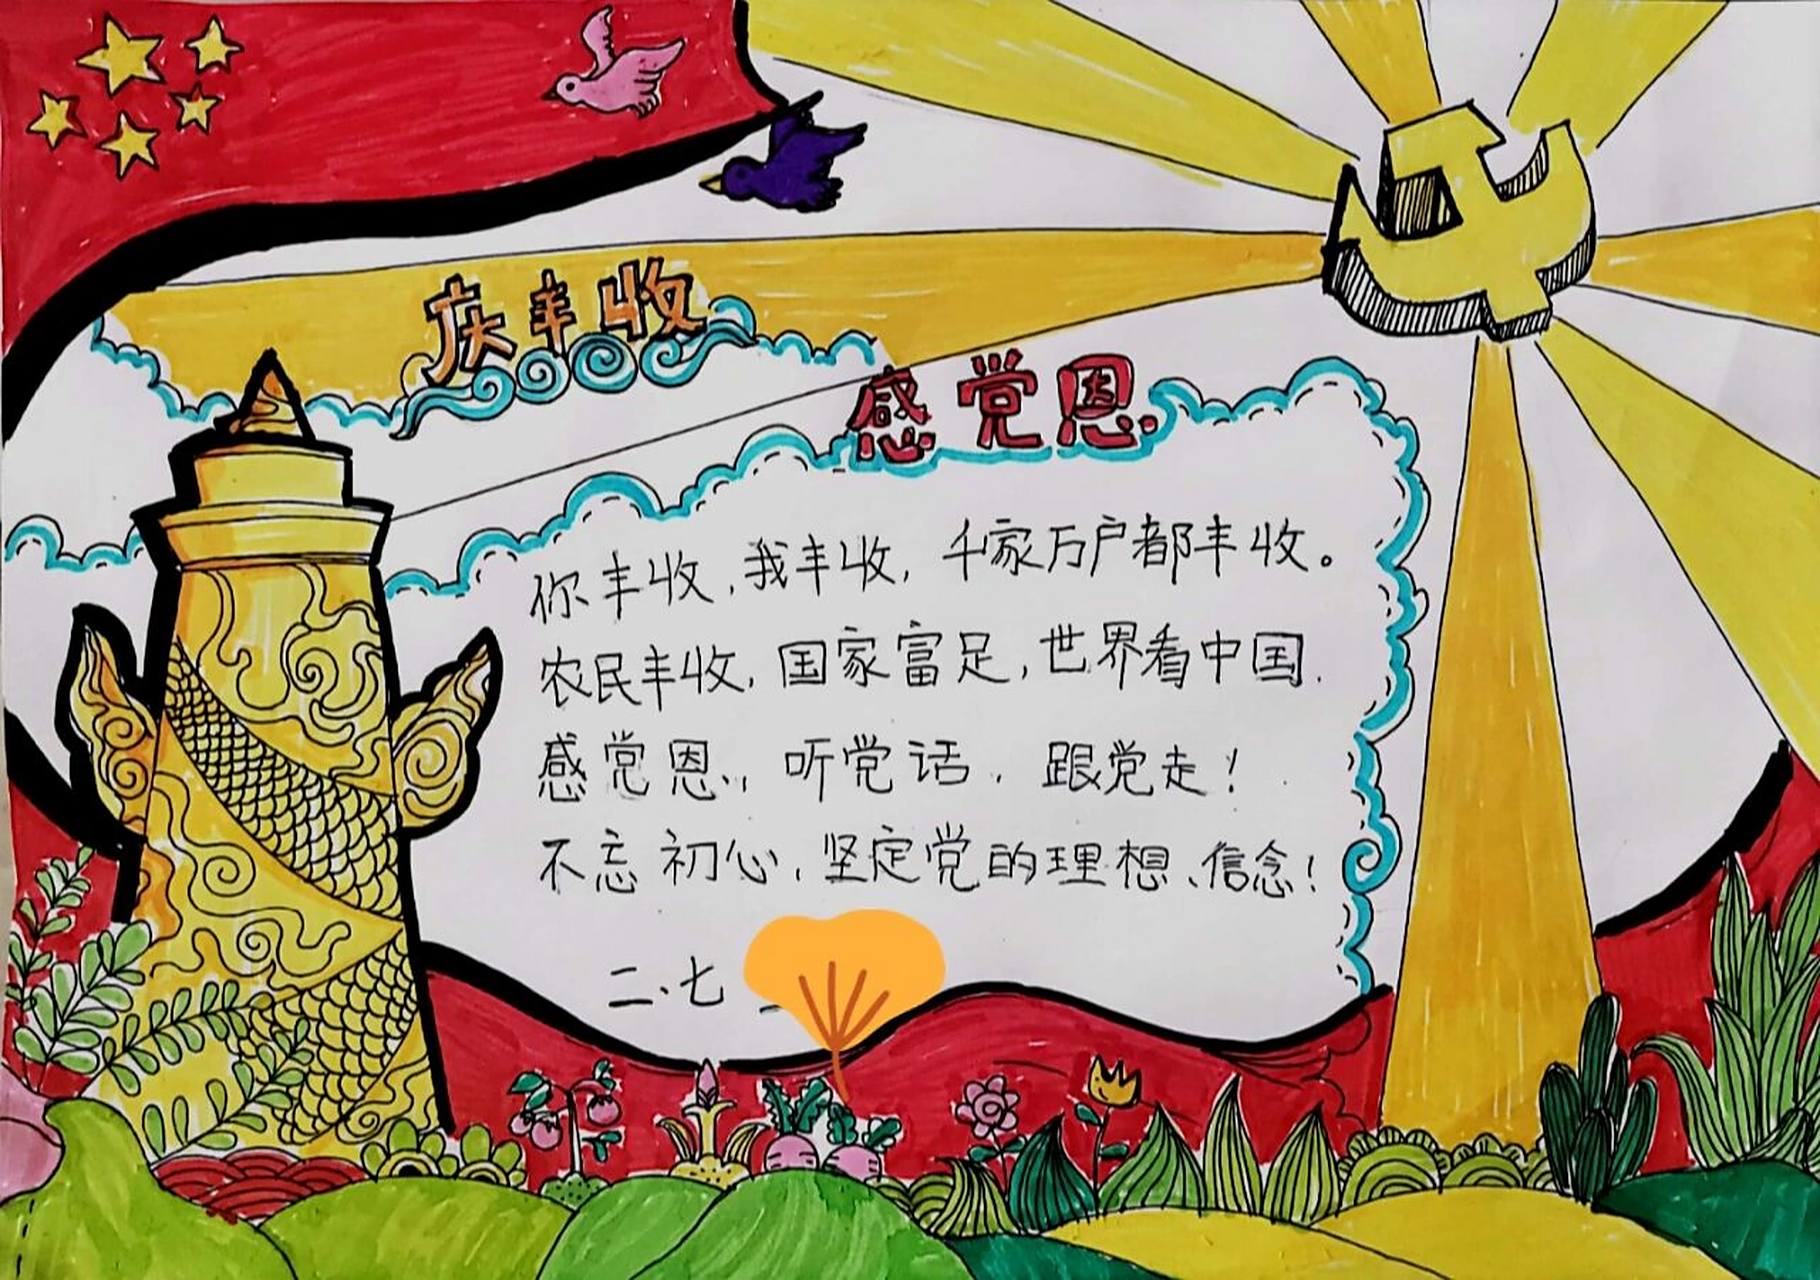 庆丰收
感党恩
你丰收,我丰收,千家万户都丰收。
农民丰收,国家富足,世界看中国.
感党恩、,听党话.跟党走!
不忘初心,坚定党的理想、信念!
二.七